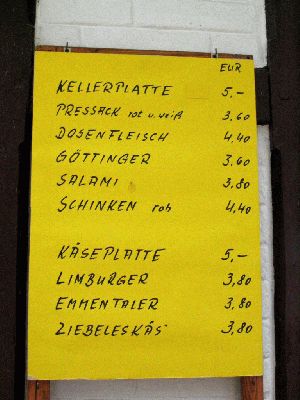 EUR
KELLERPLATTE 5,-
PRESSACK rot u. weiß 3.60
DOSENFLEISCH 4,40
GÖTTINGER 3.60
SALAMI 3,80
SCHINKEN roh 4,40
KÄSEPLATTE 5,-
LIMBURGER 3,80
EMMENTALER 3,80
ZIEBELESKÄS 3,80